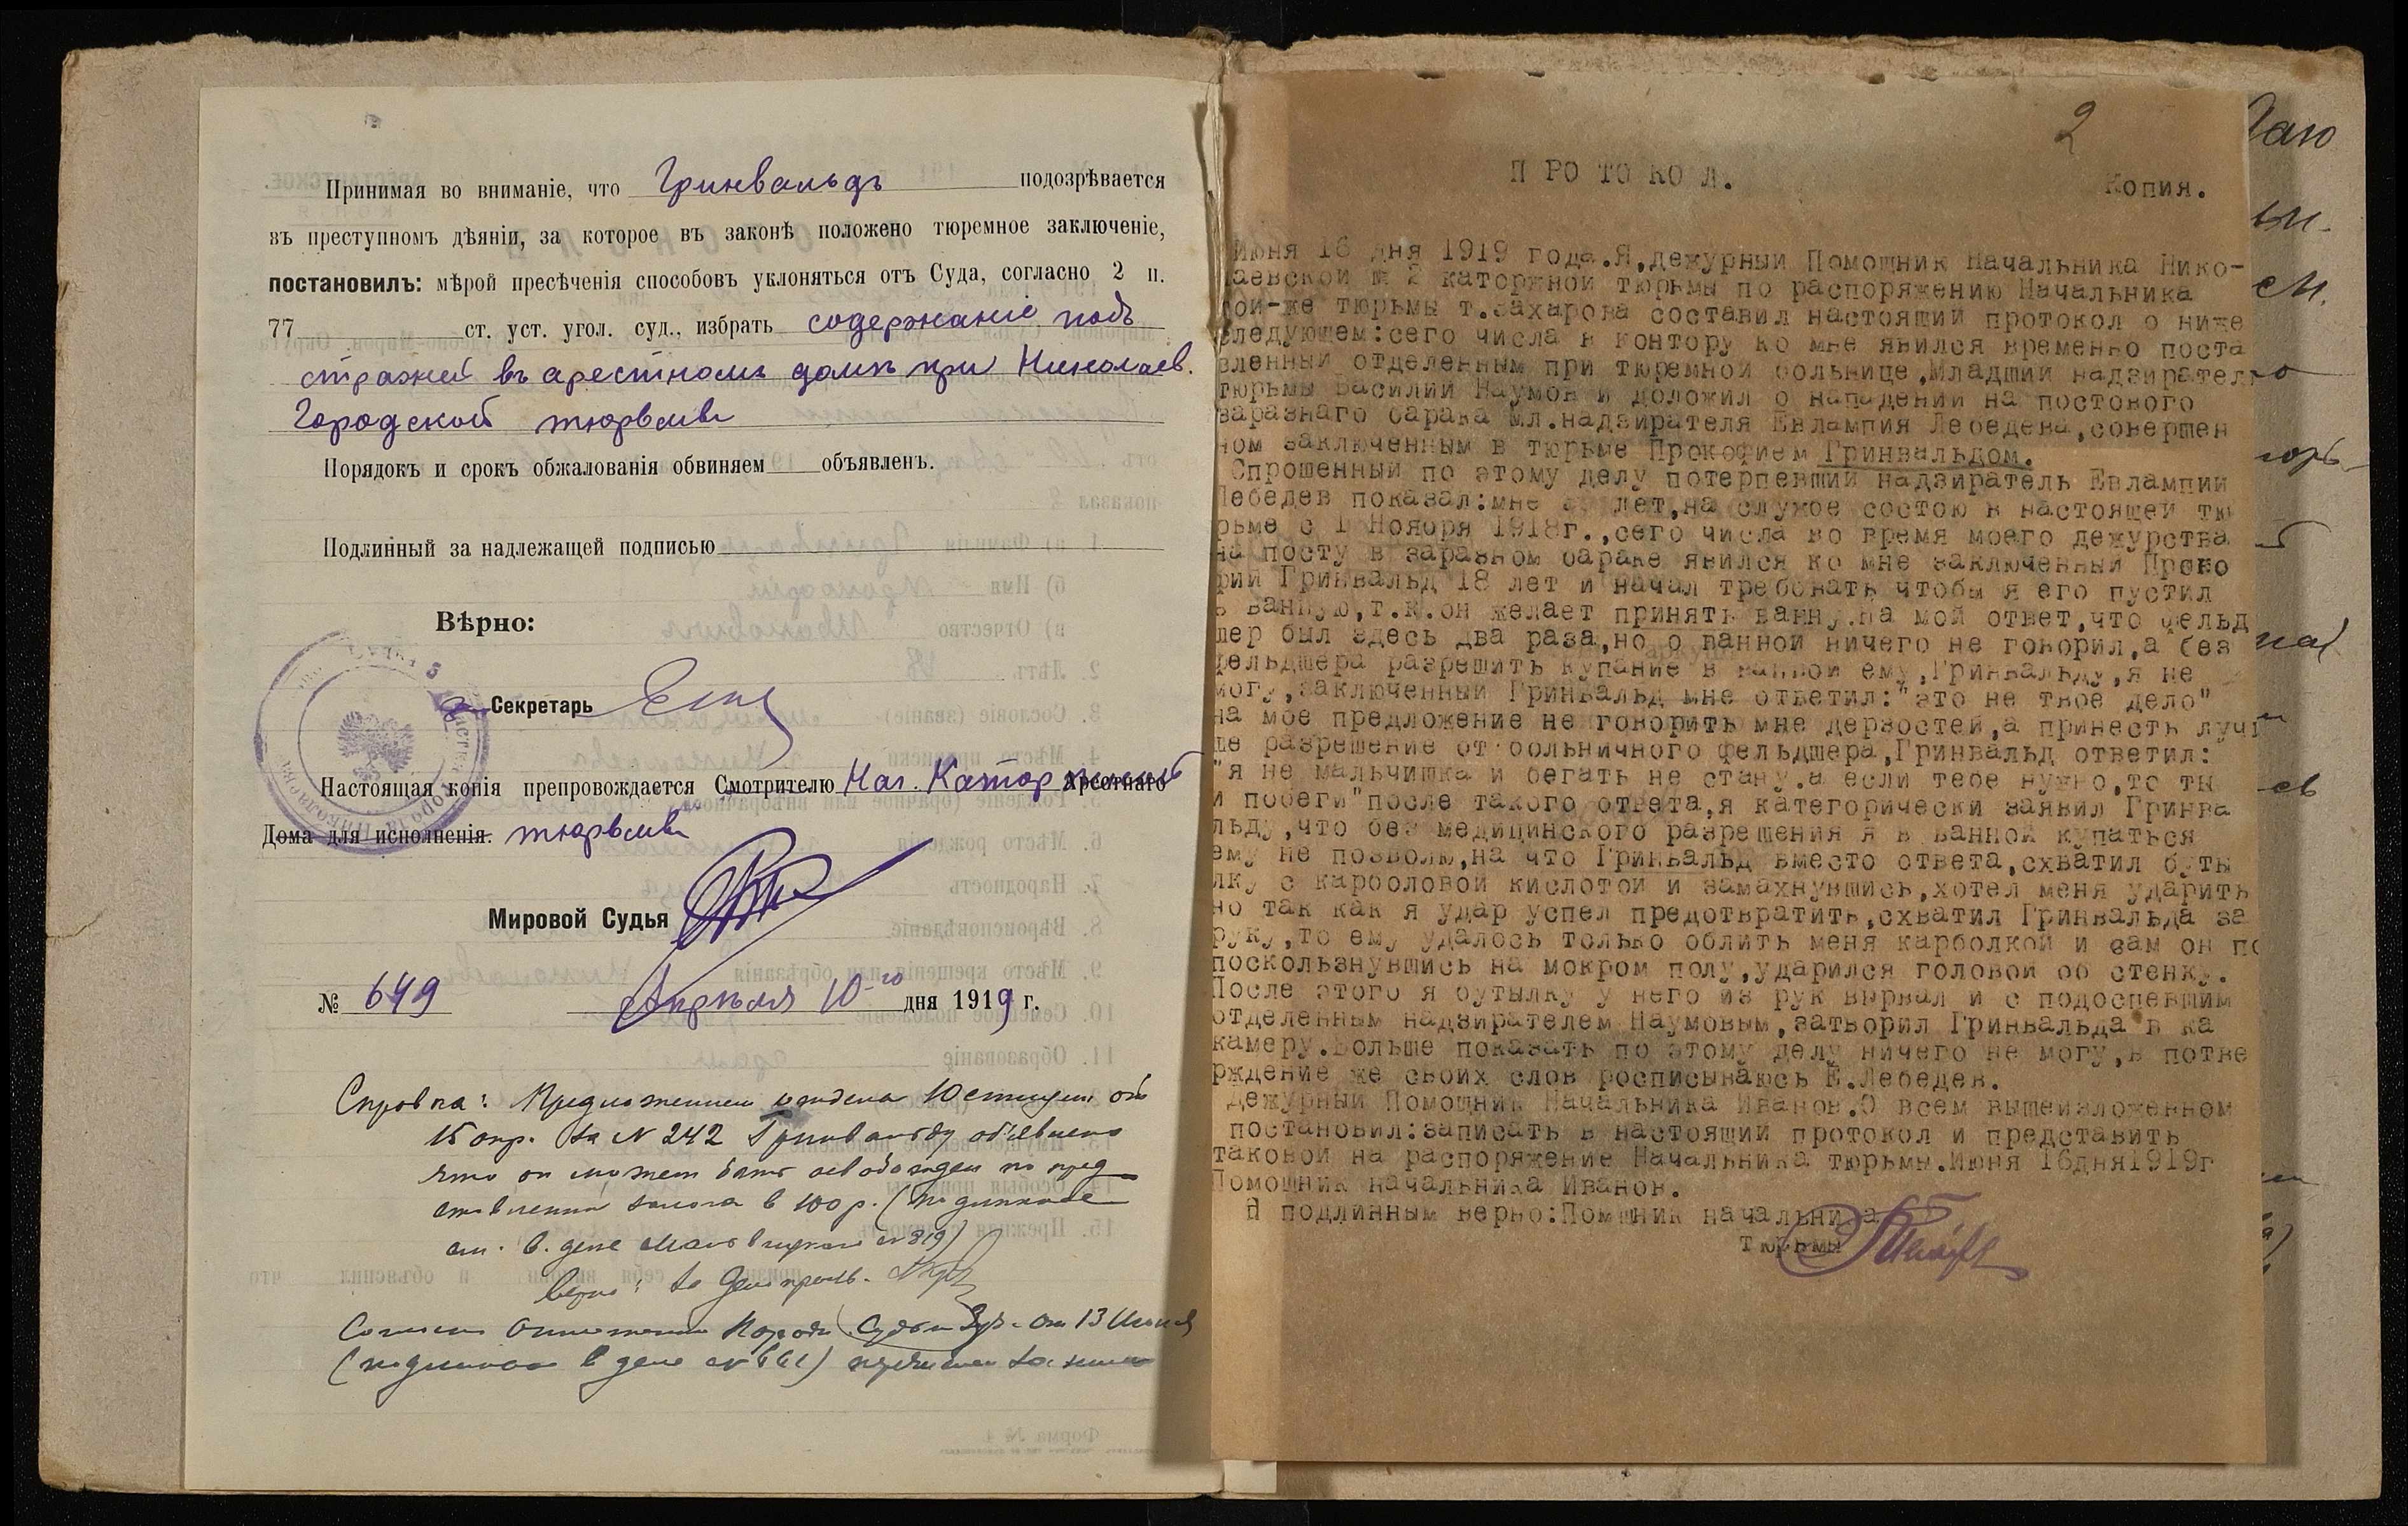 Принимая во вниманіе, что Гринвальдъ подозрѣвается
въ преступномъ дѣяніи, за которое въ законѣ положено тюремное заключеніе,
постановилъ: мѣрой пресѣченія способовъ уклоняться отъ Суда, согласно 2 п.
77 ст. уст. угол. суд., избрать содержаніе подъ
стражей въ арестномъ домѣ при Николаев.
Городской тюрьмѣ
Порядокъ и срокъ обжалованія обвиняем объявленъ.
Подлинный за надлежащей подписью
Вѣрно:
Секретарь
Настоящая копія препровождается Смотрителю Нач. Каторжной Арестнаго
Дома для исполненія. тюрьмы
Мировой Судья
№ 649 Апрѣля 10-го дня 1919 г.
Справка: Предложением отдела Юстиции от
15 апр. за N 242 Гринвальду об'явлено
что он может быть освобожден по пред
ставлении залога в 100 р. (подлинное
см. в. деле N 319)
Верно: за Делопроизв.
Согласно отношения Народн. Судьи 3 уч. от 13 Июня
(подлинное в деле N 661) перечислен за ним
2
П РО ТО КО Л.
Копия.
Июня 16 дня 1919 года.Я,дежурный Помощник Начальника Нико-
лаевской № 2 каторжной тюрьмы по распоряжению Начальника
той-же тюрьмы т.Захарова составил настоящий протокол о ниже
следующем:сего числа в контору ко мне явился временно поста
вленный отделенным при тюремной больнице,Младший надзиратель
тюрьмы Василий Наумов и доложил о нападении на постового
заразнаго барака Мл.надзирателя Евлампия Лебедева,совершен
ном заключенным в тюрьме Прокофием Гринвальдом.
Спрошенный по этому делу потерпевший надзиратель Евлампий
Лебедев показал:мне лет,на службе состою в настоящей тю
рьме с 1 Ноября 1918г.,сего числа во время моего дежурства
на посту в заразном бараке явился ко мне заключенный Проко
фий Гринвальд 18 лет и начал требовать чтобы я его пустил
в ванную,т.к.он желает принять ванну.На мой ответ,что фельд
шер был здесь два раза,но о ванной ничего не говорил,а без
фельдшера разрешить купание в ванной ему,Гринвальду,я не
могу,заключенный Гринвальд мне ответил:"это не твое дело"
на мое предложение не говорить мне дерзостей,а принесть луч
ше разрешение от больничного фельдшера,Гринвальд ответил:
"я не мальчишка и бегать не стану.а если тебе нужно,то ты
и побеги"после такого ответа,я категорически заявил Гринва
льду,что без медицинского разрешения я в ванной купаться
ему не позволю,на что Гринвальд вместо ответа,схватил буты
лку с карболовой кислотой и замахнувшись,хотел меня ударить
но так как я удар успел предотвратить,схватил Гринвальда за
руку,то ему удалось только облить меня карболкой и сам он по
поскользнувшись на мокром полу,ударился головой об стенку.
После этого я бутылку у него из рук вырвал и с подоспевшим
отделенным надзирателем Наумовым,затворил Гринвальда в ка
камеру.Больше показать по этому делу ничего не могу,в потве
рждение же своих слов росписываюсь Е.Лебедев.
Дежурный Помощник Начальника Иванов.О всем вышеизложенном
постановил:записать в настоящий протокол и представить
таковой на распоряжение Начальника тюрьмы.Июня 16дня1919г
Помощник начальника Иванов.
С подлинным верно:Помшник начальника
тюрьмы